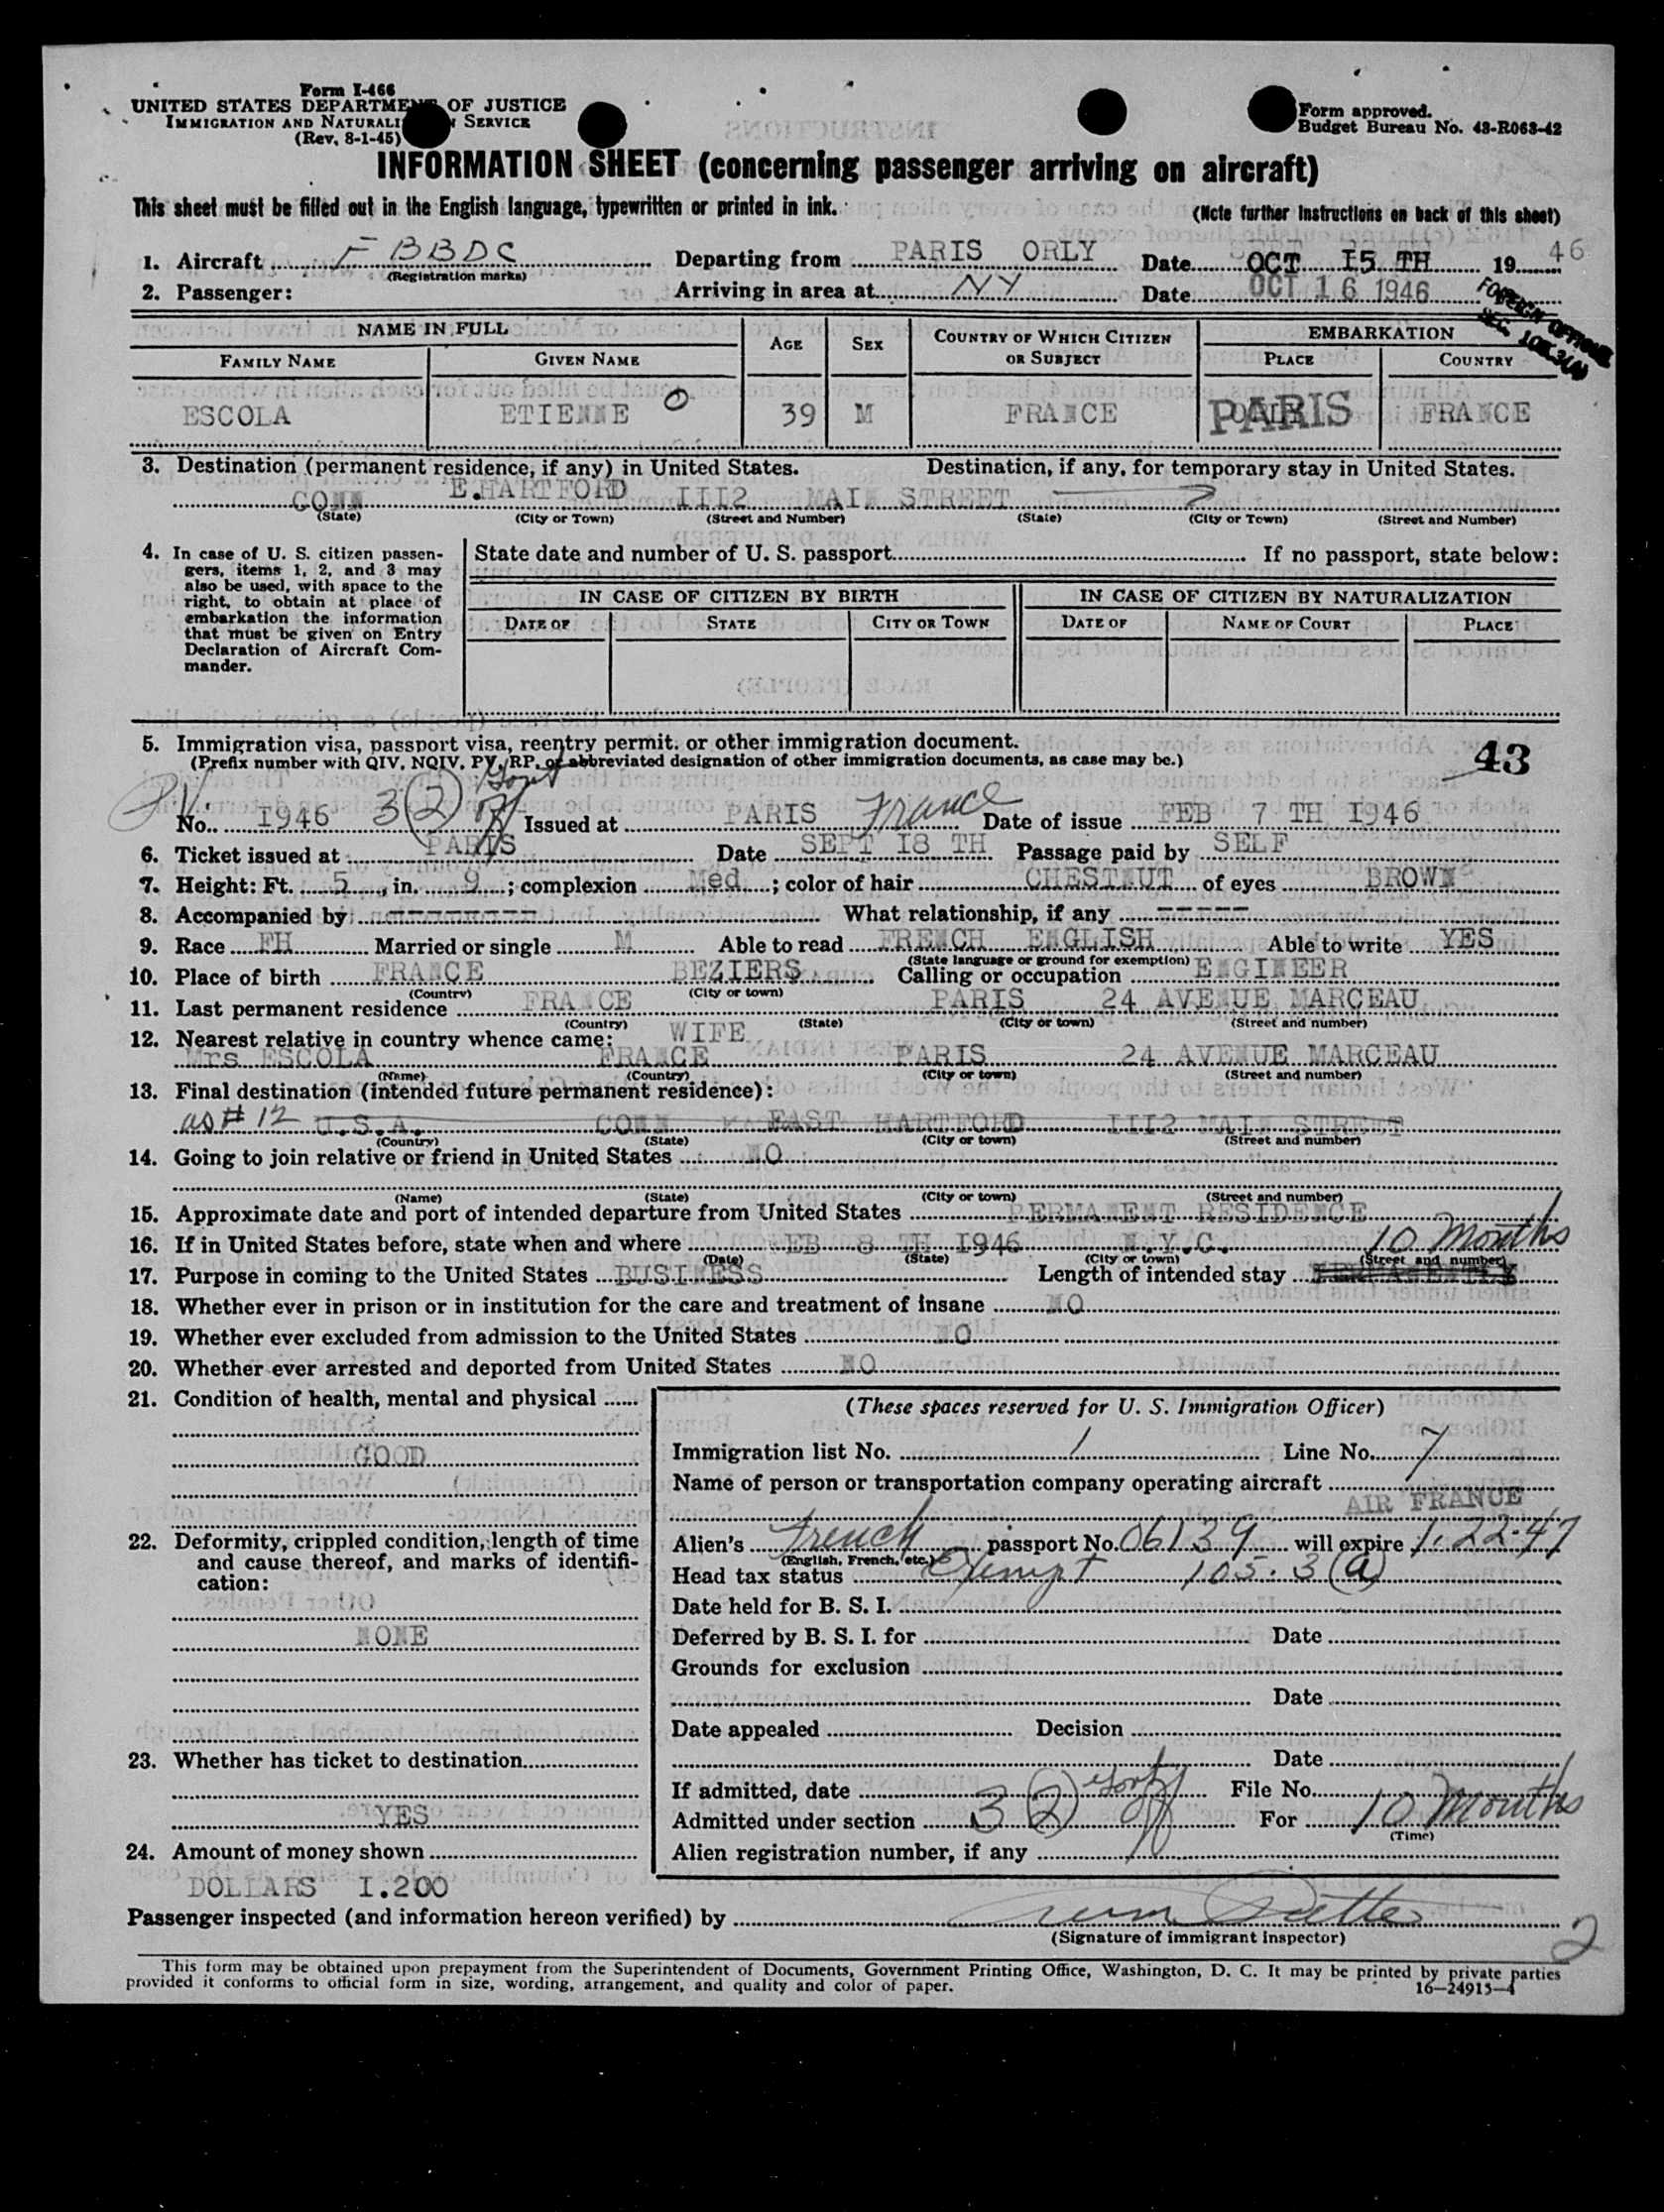 Form I-466
UNITED STATES DEPARTMENT OF JUSTICE
IMMIGRATION AND NATURALI SERVICE
(Rev. 8-1-45)
Form approved.
Budget Bureau No. 43-R063-42
INFORMATION SHEET (concerning passenger arriving on aircraft)
This sheet must be filled out in the English language, typewritten or printed in ink.
(Note further instructions on back of this sheet)
1. Aircraft F BBDC Departing from PARIS ORLY Date OCT I5 TH 1946
(Registration marks)
2. Passenger: Arriving in area at NY Date OCT 16 1946
FOREIGN OFFICIAL
SEC. 105.3(A)
NAME IN FULL AGE SEX COUNTRY OF WHICH CITIZEN OR SUBJECT EMBARKATION
FAMILY NAME GIVEN NAME PLACE COUNTRY
ESCOLA ETIENNE O 39 M FRANCE PARIS FRANCE
3. Destination (permanent residence, if any) in United States. Destination, if any, for temporary stay in United States.
CONN E.HARTFORD III2 MAIN STREET
(State) (City or Town) (Street and Number) (State) (City or Town) (Street and Number)
4. In case of U. S. citizen passengers, items 1, 2, and 3 may also be used, with space to the right, to obtain at place of embarkation the information that must be given on Entry Declaration of Aircraft Commander.
State date and number of U. S. passport If no passport, state below:
IN CASE OF CITIZEN BY BIRTH IN CASE OF CITIZEN BY NATURALIZATION
DATE OF STATE CITY OR TOWN DATE OF NAME OF COURT PLACE
5. Immigration visa, passport visa, reentry permit, or other immigration document.
(Prefix number with QIV, NQIV, PV, RP, or abbreviated designation of other immigration documents, as case may be.)
43
PV. Govt
No. I946 3(2) Off Issued at PARIS France Date of issue FEB 7 TH I946
6. Ticket issued at PARIS Date SEPT I8 TH Passage paid by SELF
7. Height: Ft. 5, in. 9; complexion Med; color of hair CHESTNUT of eyes BROWN
8. Accompanied by --------- What relationship, if any -----
9. Race FH Married or single M Able to read FRENCH ENGLISH Able to write YES
(State language or ground for exemption)
10. Place of birth FRANCE BEZIERS Calling or occupation ENGINEER
(Country) (City or town)
11. Last permanent residence FRANCE PARIS 24 AVENUE MARCEAU
(Country) (State) (City or town) (Street and number)
12. Nearest relative in country whence came: WIFE
Mrs ESCOLA FRANCE PARIS 24 AVENUE MARCEAU
(Name) (Country) (City or town) (Street and number)
13. Final destination (intended future permanent residence):
as # 12 U.S.A. CONN EAST HARTFORD III2 MAIN STREET
(Country) (State) (City or town) (Street and number)
14. Going to join relative or friend in United States NO
(Name) (State) (City or town) (Street and number)
15. Approximate date and port of intended departure from United States PERMANENT RESIDENCE
16. If in United States before, state when and where FEB 8 TH I946 N.Y.C. 10 Months
(Date) (State) (City or town) (Street and number)
17. Purpose in coming to the United States BUSINESS Length of intended stay
18. Whether ever in prison or in institution for the care and treatment of insane NO
19. Whether ever excluded from admission to the United States NO
20. Whether ever arrested and deported from United States NO
21. Condition of health, mental and physical
GOOD
22. Deformity, crippled condition, length of time and cause thereof, and marks of identification:
NONE
23. Whether has ticket to destination
YES
24. Amount of money shown
DOLLARS I.200
(These spaces reserved for U. S. Immigration Officer)
Immigration list No. 1 Line No. 7
Name of person or transportation company operating aircraft
AIR FRANCE
Alien's French passport No. 06139 will expire 1-22-47
(English, French, etc.)
Head tax status Exempt 105.3(a)
Date held for B. S. I.
Deferred by B. S. I. for Date
Grounds for exclusion
Date
Date appealed Decision
Date
If admitted, date File No.
Admitted under section 3(2) Govt Off For 10 Months
(Time)
Alien registration number, if any
Passenger inspected (and information hereon verified) by
(Signature of immigrant inspector)
2
This form may be obtained upon prepayment from the Superintendent of Documents, Government Printing Office, Washington, D. C. It may be printed by private parties
provided it conforms to official form in size, wording, arrangement, and quality and color of paper.
16—24915-4